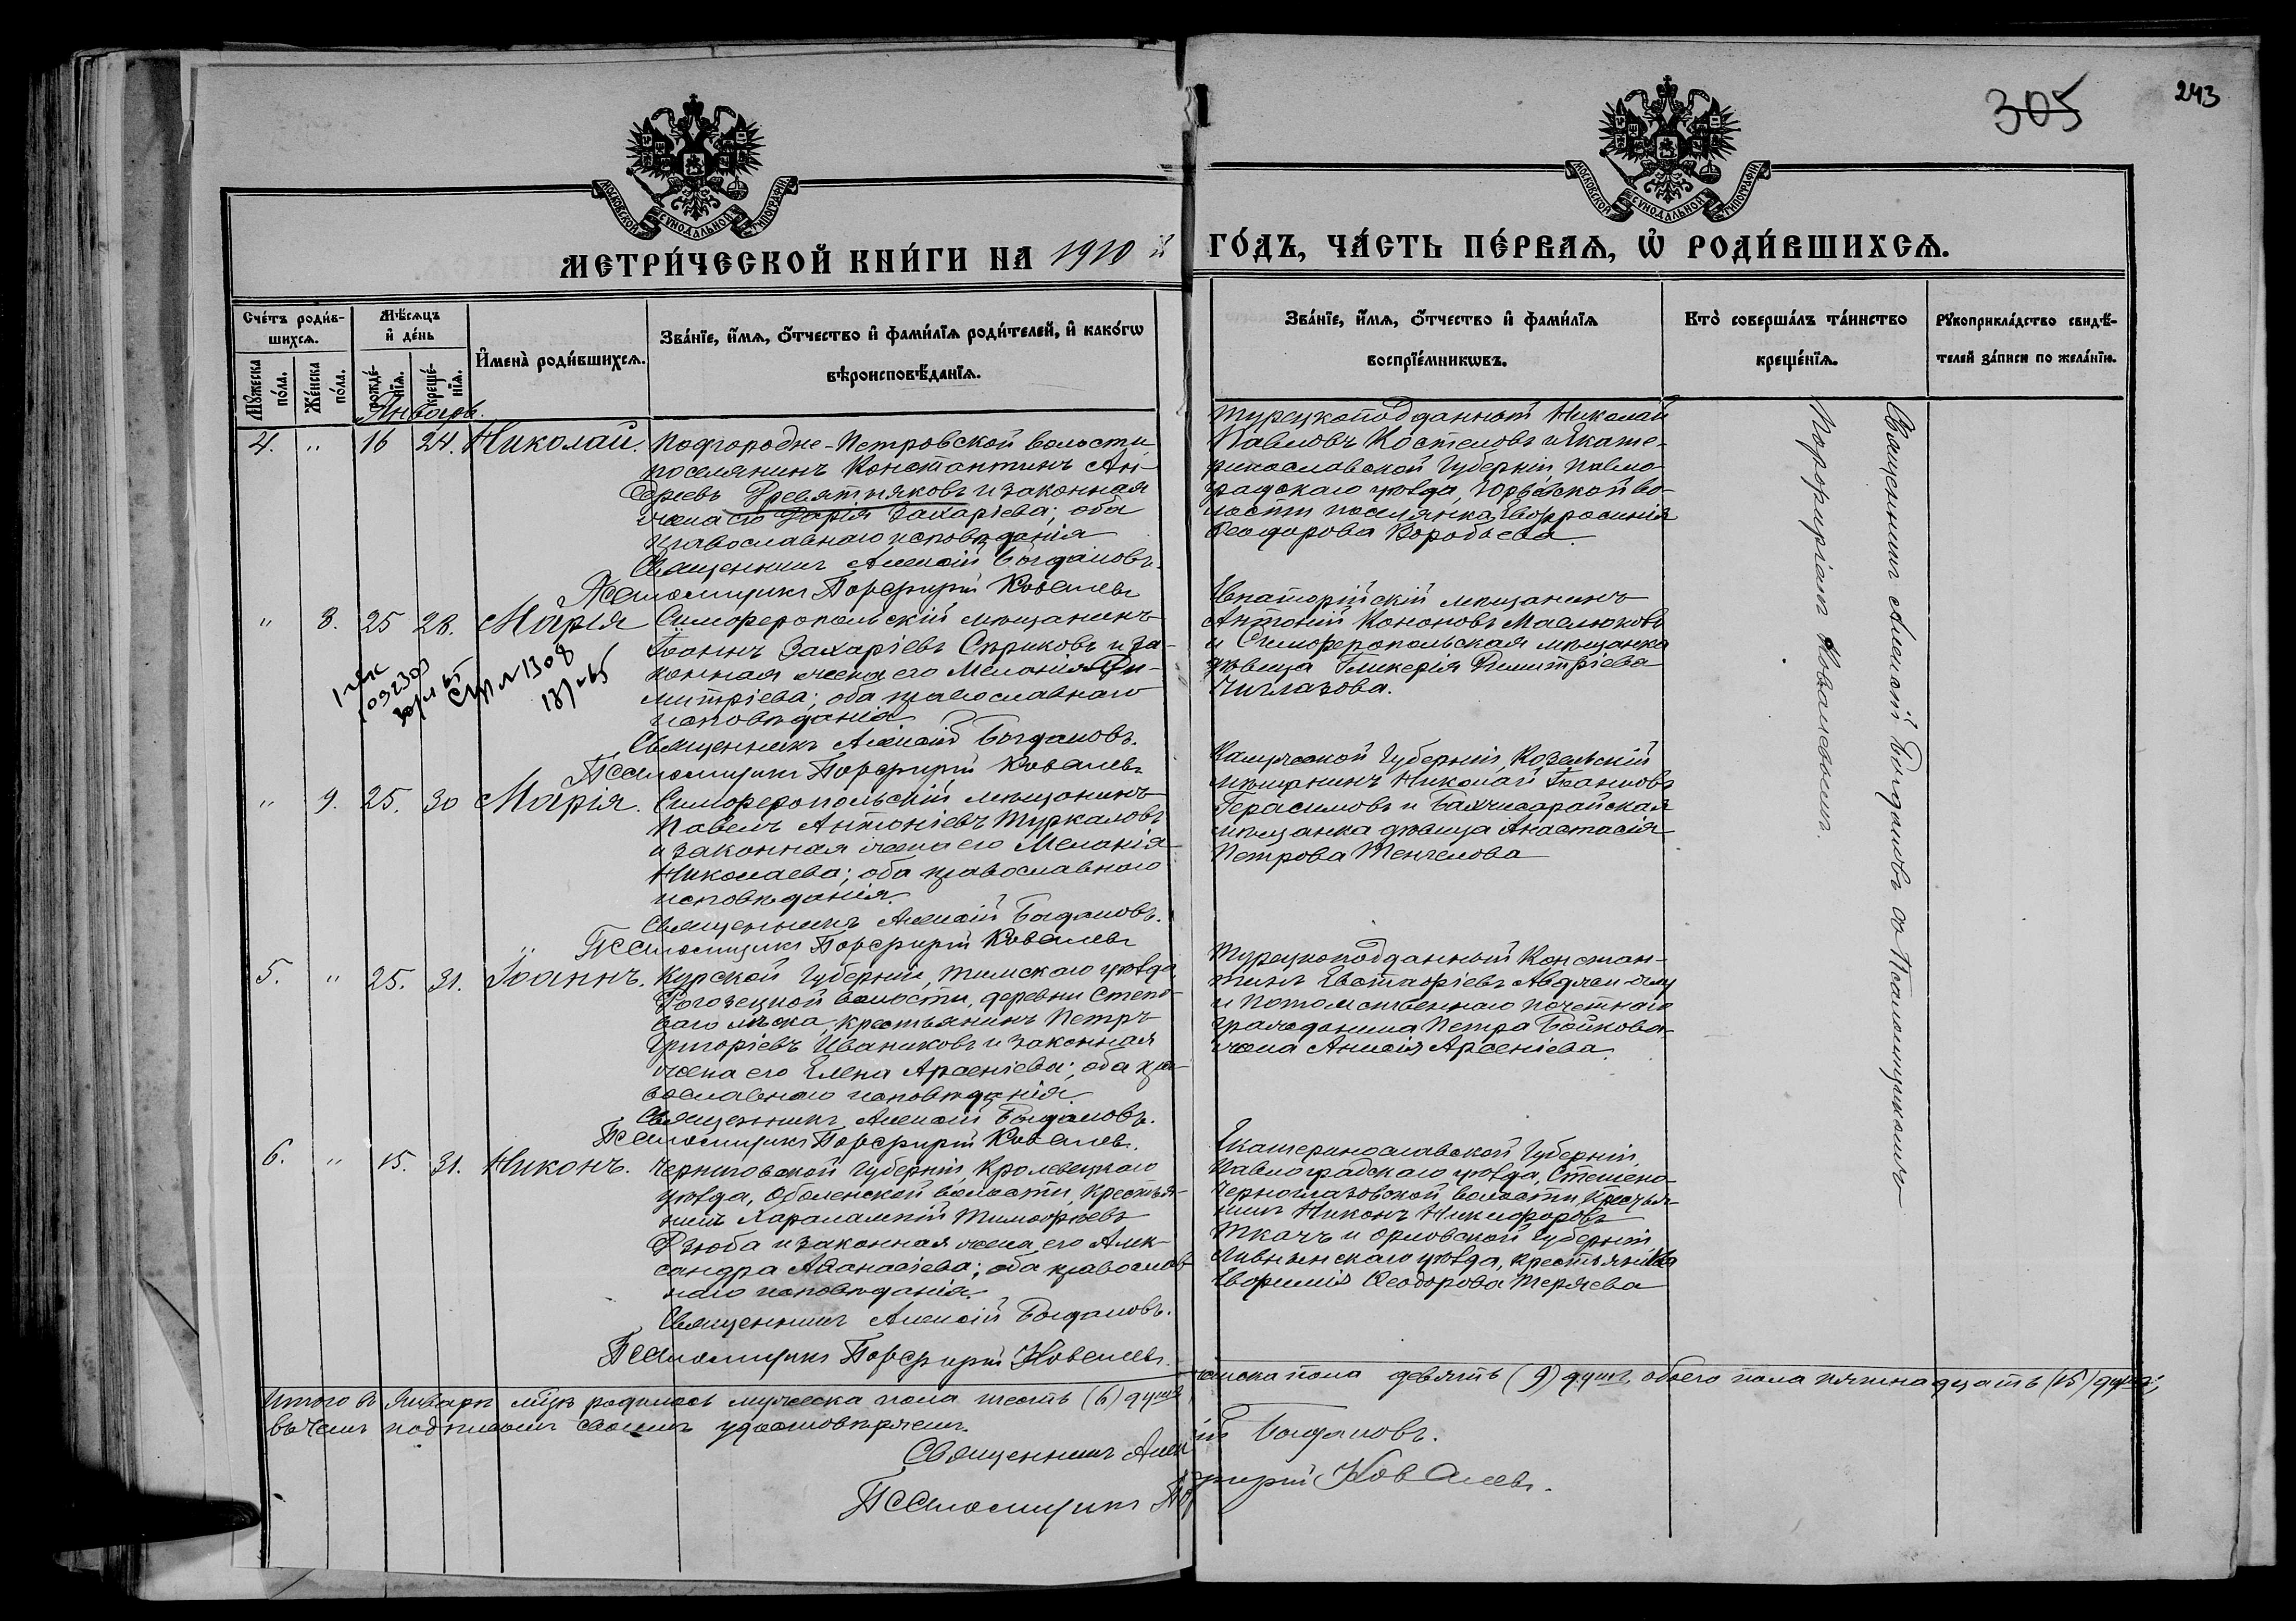 305
243
МОСКОВСКОЙ СѴНОДАЛЬНОЙ ТИПОГРАФІИ
МОСКОВСКОЙ СѴНОДАЛЬНОЙ ТИПОГРАФІИ
МЕТРИ́ЧЕСКОЙ КНИ́ГИ НА 1910 й ГО́ДЪ, ЧА́СТЬ ПЕ́РВАЯ, Ѡ РОДИ́ВШИХСЯ.
Сче́тъ роди́в-
шихся.
Му́жеска по́ла.
Же́нска по́ла.
Мѣ́сяцъ
и де́нь
рожде́-
нія.
креще́-
нія.
Имена̀ роди́вшихся.
Зва́ніе, имя, о́тчество и фами́лія роди́телей, и како́гѡ
вѣроисповѣ́данія.
Зва́ніе, имя, о́тчество и фами́лія
воспріе́мникѡвъ.
Кто̀ соверша́лъ та́инство
креще́нія.
Рꙋкоприкла́дство свидѣ́-
телей за́писи по жела́нію.
Январь.
4. " 16 24. Николай.
Подгородне-Петровской волости
поселянинъ Константинъ Ан-
дреевъ Девятьяковъ и законная
жена его Дарія Захаріева; оба
православнаго исповѣданія
Священникъ Алексій Богдановъ.
Псаломщикъ Порфирій Ковалевъ
Турецкоподданный Николай
Павловъ Костеловъ и Екате-
ринославской Губерніи Павло-
градскаго уѣзда, Юрьевской во-
лости поселянка Евфросинія
Ѳеодорова Воробьева.
" 8. 25 28. Марія
Симферопольскій мѣщанинъ
Іоаннъ Захаріевъ Спрыковъ и за-
конная жена его Меланія Ди-
митріева; оба православнаго
исповѣданія
Священникъ Алексій Богдановъ.
Псаломщикъ Порфирій Ковалевъ
Евпаторійскій мѣщанинъ
Антоній Кононовъ Маслюковъ
и Симферопольская мѣщанка
дѣвица Гликерія Димитріева
Чиглазова.
" 9. 25. 30 Марія.
Симферопольскій мѣщанинъ
Павелъ Антоніевъ Туркаловъ
и законная жена его Меланія
Николаева; оба православнаго
исповѣданія.
Священникъ Алексій Богдановъ.
Псаломщикъ Порфирій Ковалевъ
Калужской Губерніи, Козельскій
мѣщанинъ Николай Іоанновъ
Герасимовъ и Бахчисарайская
мѣщанка дѣвица Анастасія
Петрова Тенчелова
5. " 25. 31. Іоаннъ.
Курской Губерніи, Тимскаго уѣзда,
Рогозецкой волости, деревни Степо-
ваго лѣска, крестьянинъ Петръ
Григоріевъ Иваниковъ и законная
жена его Елена Арсеніева; оба пра-
вославнаго исповѣданія
Священникъ Алексій Богдановъ.
Псаломщикъ Порфирій Ковалевъ.
Турецкоподданный Констан-
тинъ Евстафіевъ
и Потомственнаго почетнаго
гражданина Петра Бойкова
жена Анисія Арсеніева.
6. " 15. 31. Никонъ.
Черниговской Губерніи Кролевецкаго
уѣзда, Оболенской волости, крестья-
нинъ Харалампій Тимофѣевъ
Дзюба и законная жена его Алек-
сандра Аѳанасіева; оба православ-
наго исповѣданія.
Священникъ Алексій Богдановъ.
Псаломщикъ Порфирій Ковалевъ.
Екатеринославской Губерніи
Павлоградскаго уѣзда,
волости, крестья-
нинъ Никонъ Никифоровъ
Ткачъ и Орловской Губерніи
Ливненскаго уѣзда, крестьянка
Евфимія Ѳеодорова Теряева
Священникъ Алексій Богдановъ съ Псаломщикомъ
Порфиріемъ Ковалевымъ.
Итого въ Январѣ мѣс. родилось мужеска пола шесть (6) душъ, женска пола девять (9) душъ, обоего пола пятнадцать (15) душъ;
въ чемъ подписомъ своимъ удостовѣряемъ.
Священникъ Алексій Богдановъ.
Псаломщикъ Порфирій Ковалевъ.